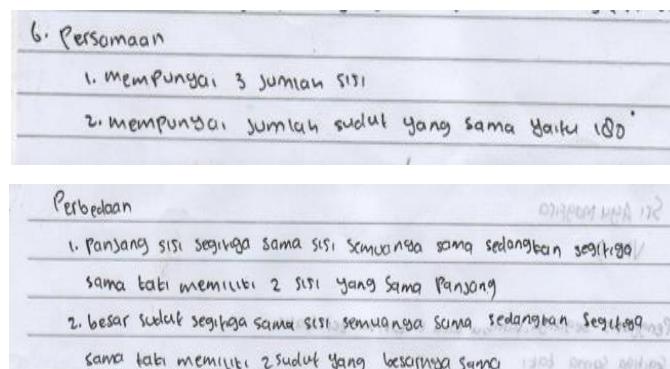 6. Persamaan
1. mempunyai 3 jumlah sisi
2. mempunyai jumlah sudut yang sama yaitu 180°
Perbedaan
1. panjang sisi segitiga sama sisi semuanya sama sedangkan segitiga
sama kaki memiliki 2 sisi yang sama panjang
2. besar sudut segitiga sama sisi semuanya sama sedangkan segitiga
sama kaki memiliki 2 sudut yang besarnya sama